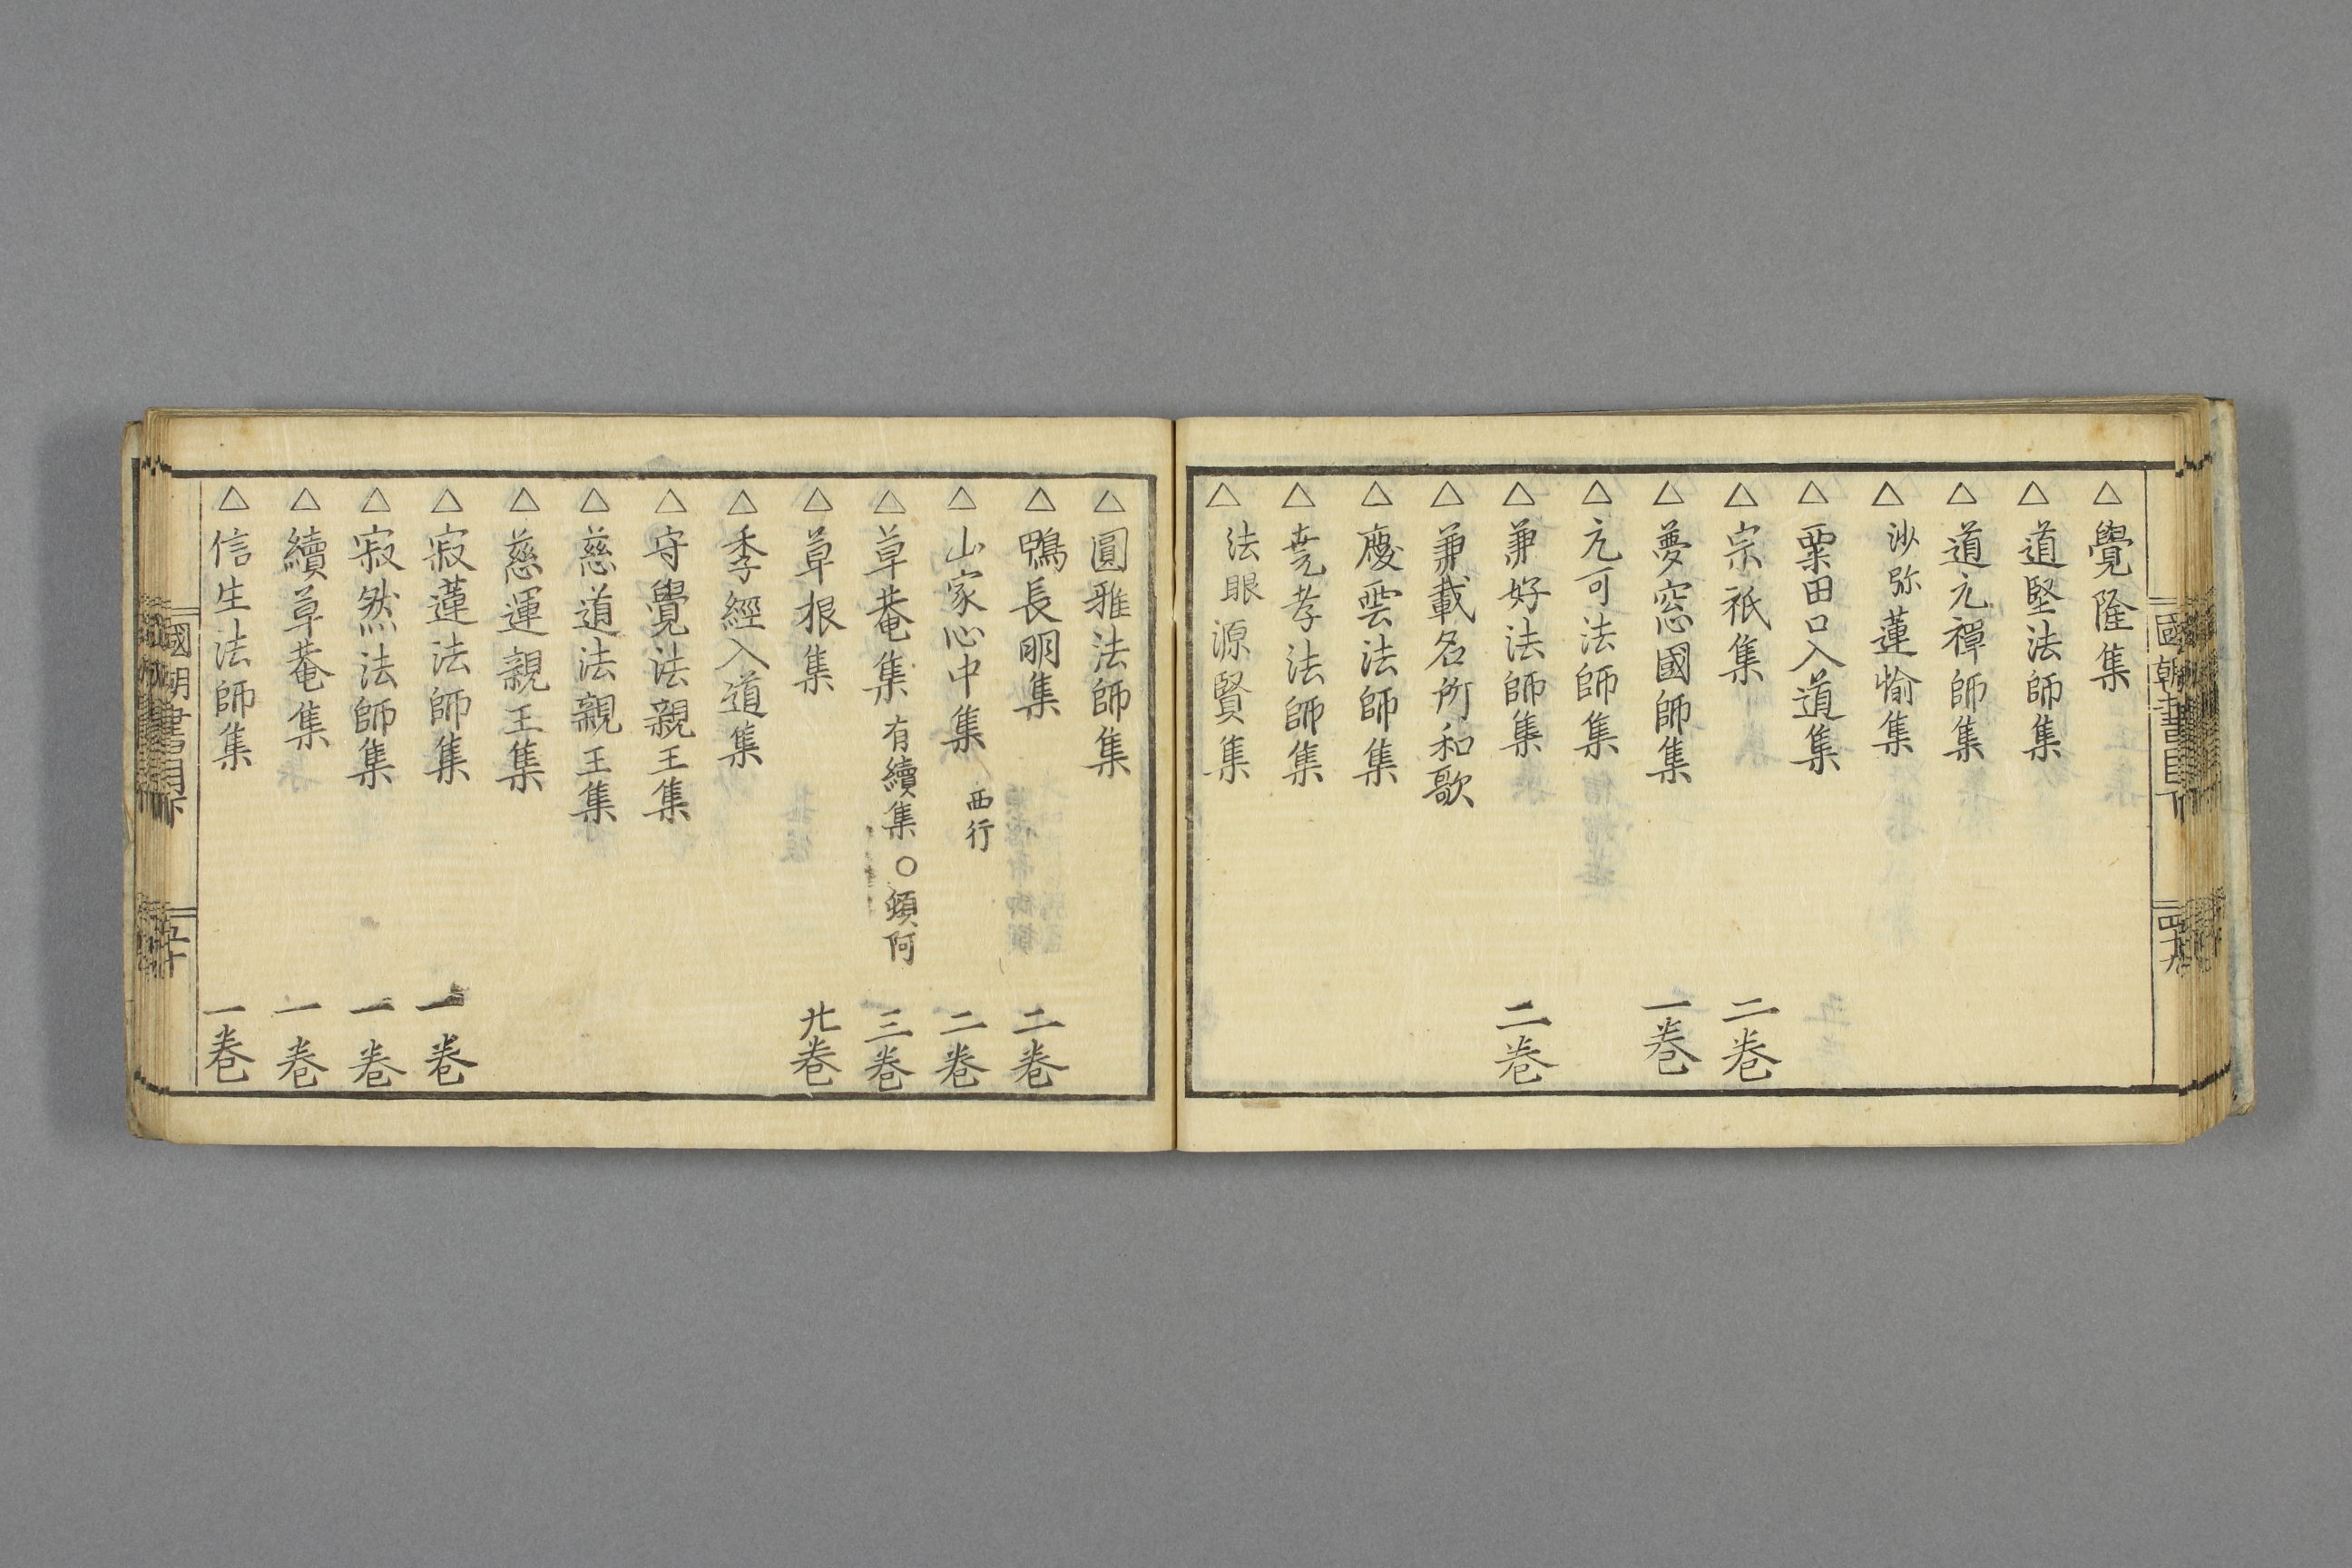 國朝書目下
四十九
△覺隆集
△道堅法師集
△道元禪師集
△沙弥蓮愉集
△粟田口入道集
△宗祇集 二巻
△夢窓國師集 一巻
△元可法師集
△兼好法師集 二巻
△兼載名所和歌
△慶雲法師集
△尭孝法師集
△法眼源賢集
△圓雅法師集
△鴨長明集 二巻
△山家心中集 西行 二巻
△草菴集 有續集○頓阿 三巻
△草根集 廾巻
△季經入道集
△守覺法親王集
△慈道法親王集
△慈運親王集
△寂蓮法師集 一巻
△寂然法師集 一巻
△續草菴集 一巻
△信生法師集 一巻
國朝書目下
五十